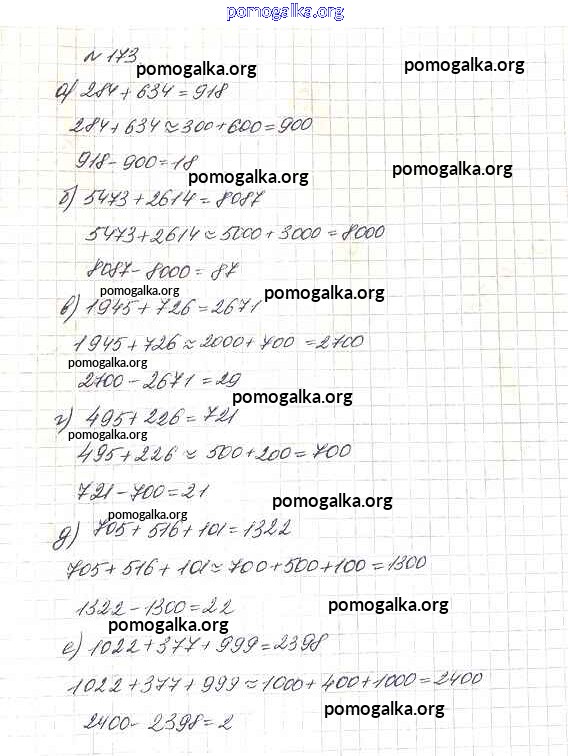 pomogalka.org
№ 173
pomogalka.org
pomogalka.org
а) 284 + 634 = 918
284 + 634 ≈ 300 + 600 = 900
918 - 900 = 18
pomogalka.org
pomogalka.org
б) 5473 + 2614 = 8087
5473 + 2614 ≈ 5000 + 3000 = 8000
8087 - 8000 = 87
pomogalka.org
pomogalka.org
в) 1945 + 726 = 2671
1945 + 726 ≈ 2000 + 700 = 2700
pomogalka.org
2700 - 2671 = 29
pomogalka.org
г) 495 + 226 = 721
pomogalka.org
495 + 226 ≈ 500 + 200 = 700
721 - 700 = 21
pomogalka.org
pomogalka.org
д) 705 + 516 + 101 = 1322
705 + 516 + 101 ≈ 700 + 500 + 100 = 1300
1322 - 1300 = 22
pomogalka.org
pomogalka.org
е) 1022 + 377 + 999 = 2398
1022 + 377 + 999 ≈ 1000 + 400 + 1000 = 2400
pomogalka.org
2400 - 2398 = 2